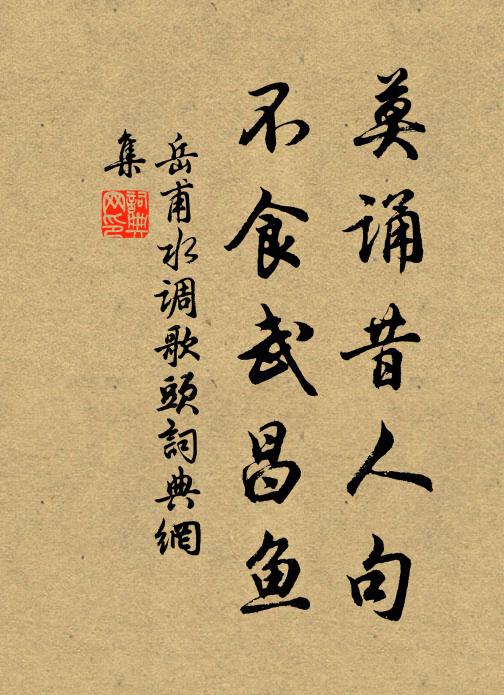 莫诵昔人句
不食武昌鱼
岳甫水调歌頭詞典網
集
詞典
网印